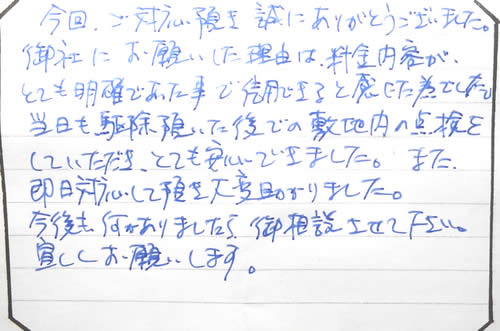 今回、ご対応頂き誠にありがとうございました。
御社にお願いした理由は、料金内容が、
とても明確であった事で信用できると感じた為でした。
当日も駆除頂いた後での敷地内の点検を
していただき、とても安心できました。また、
即日対応して頂き大変助かりました。
今後も何かありましたら、御相談させて下さい。
宜しくお願いします。